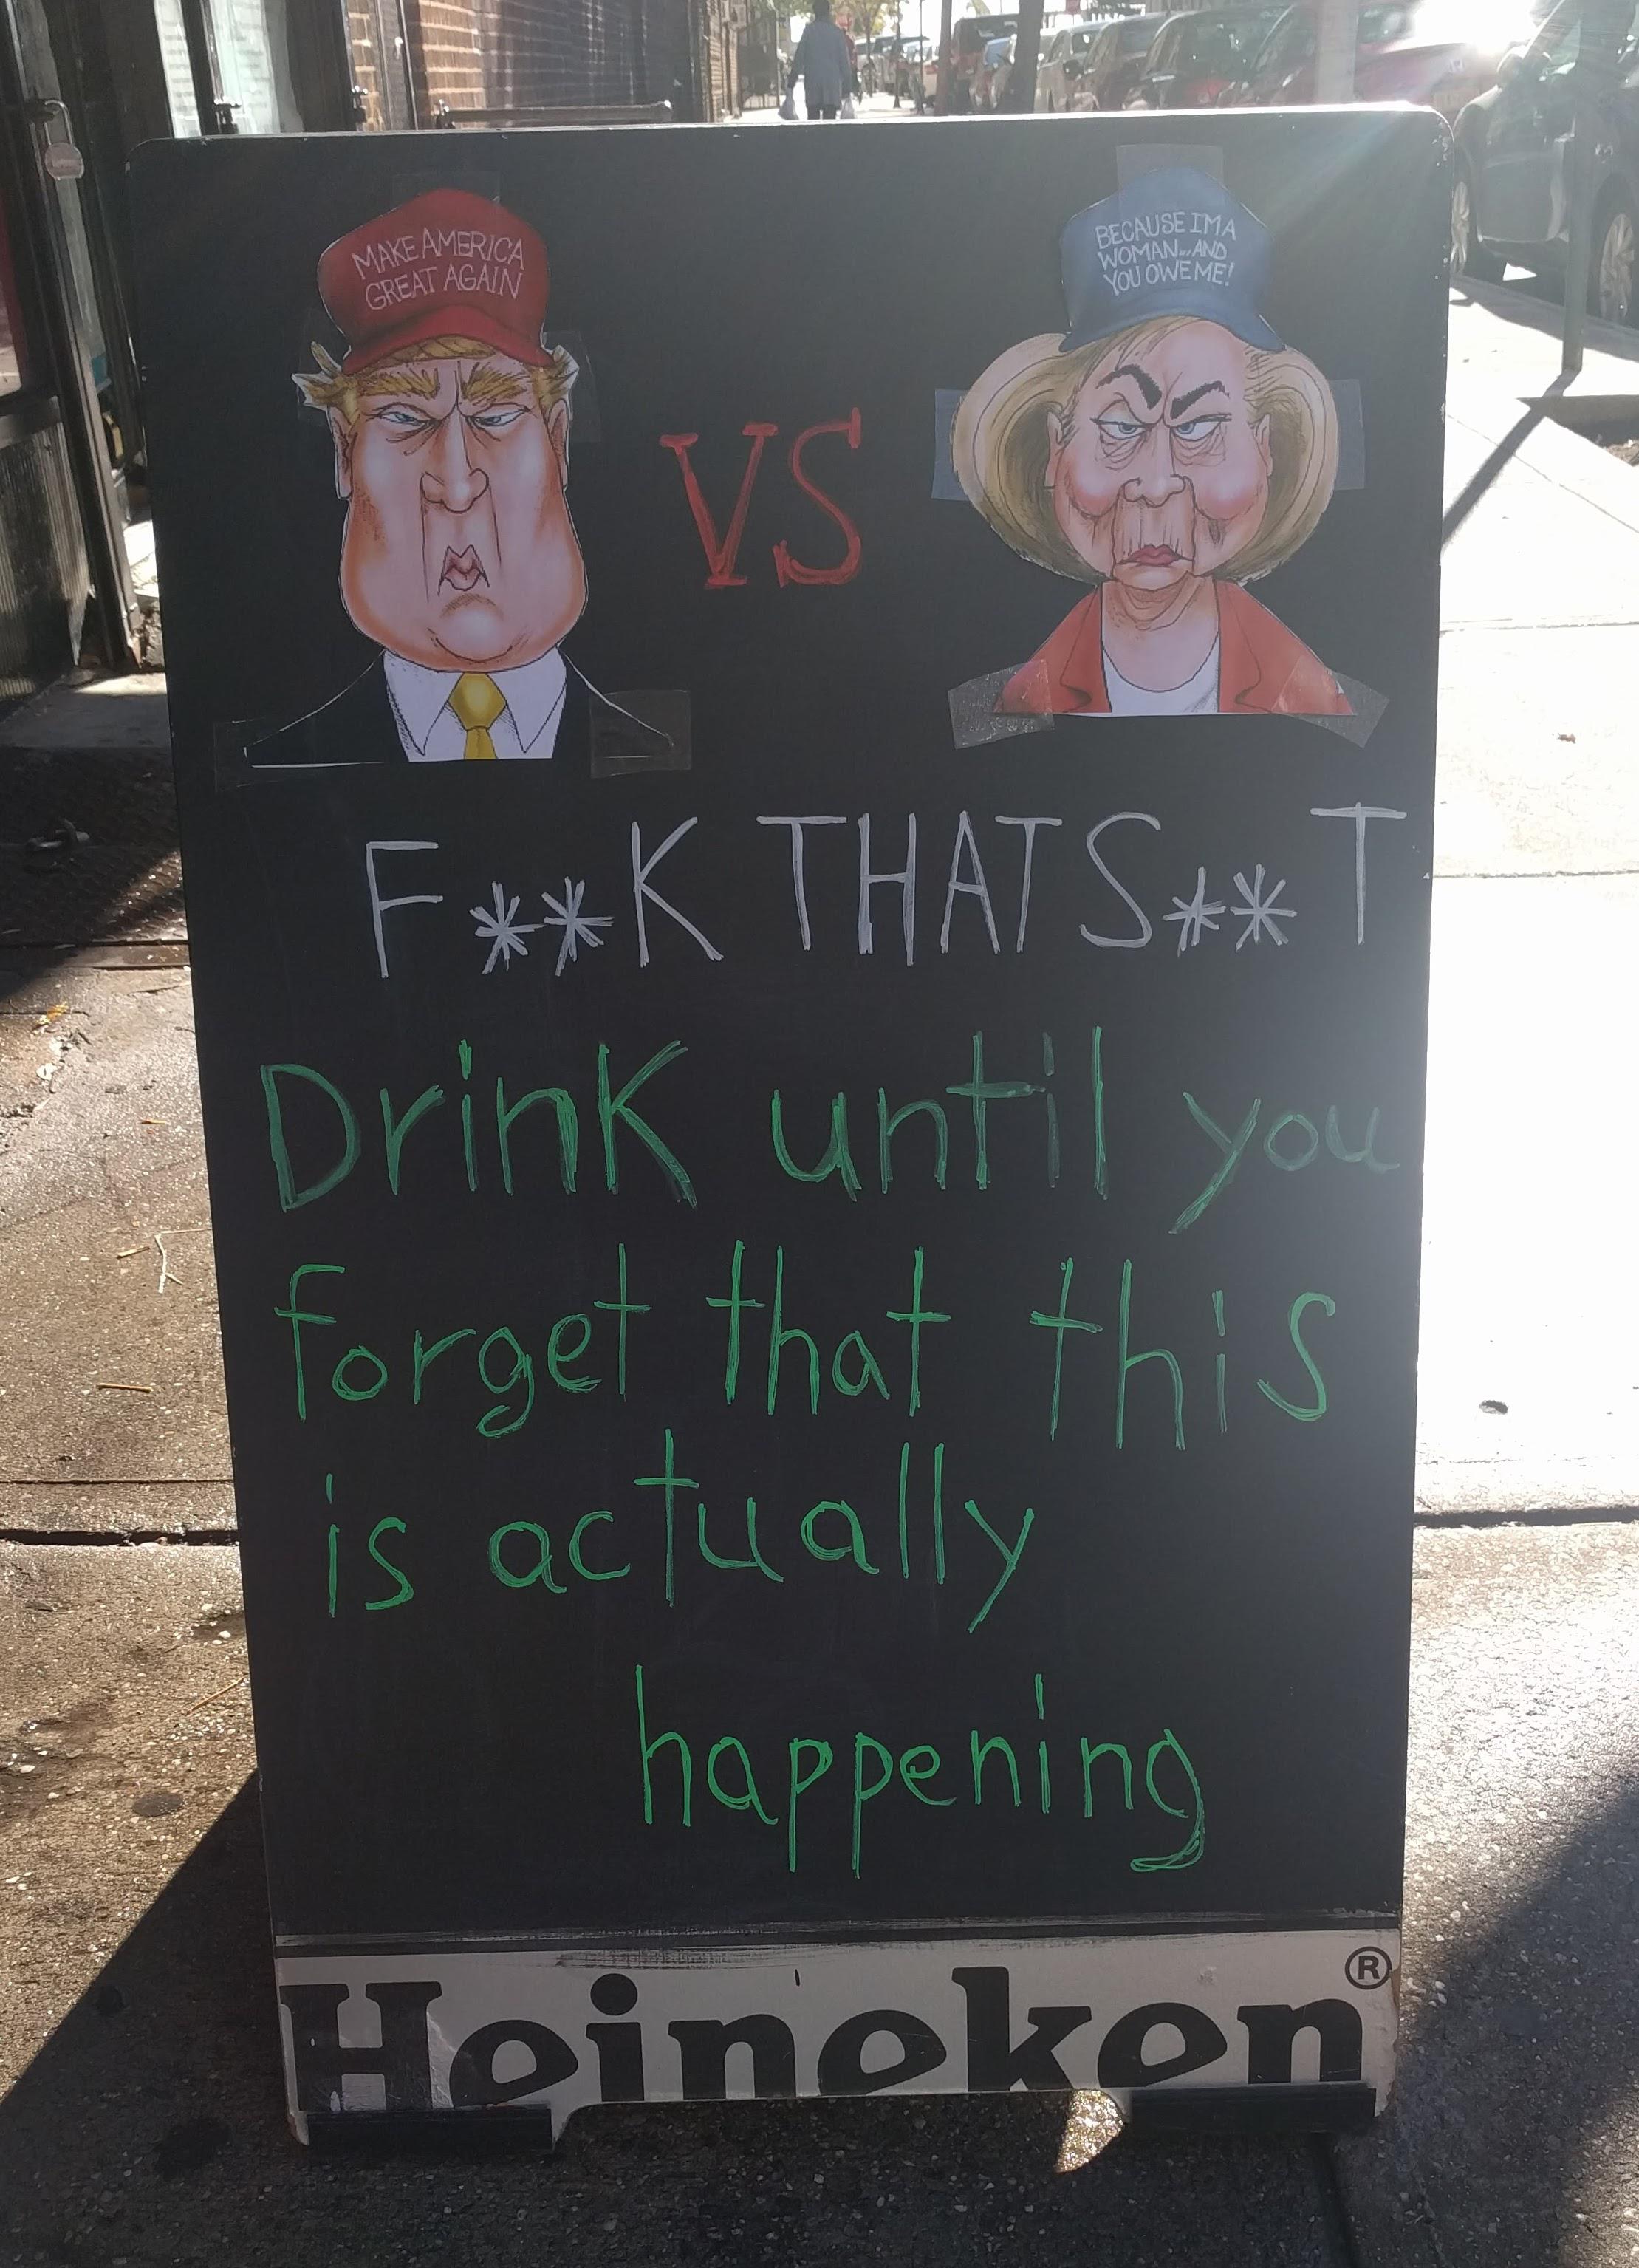 MAKE AMERICA
GREAT AGAIN
BECAUSE I'M A
WOMAN... AND
YOU OWE ME!
VS
F**K THAT S**T
Drink until you
forget that this
is actually
happening
Heineken®